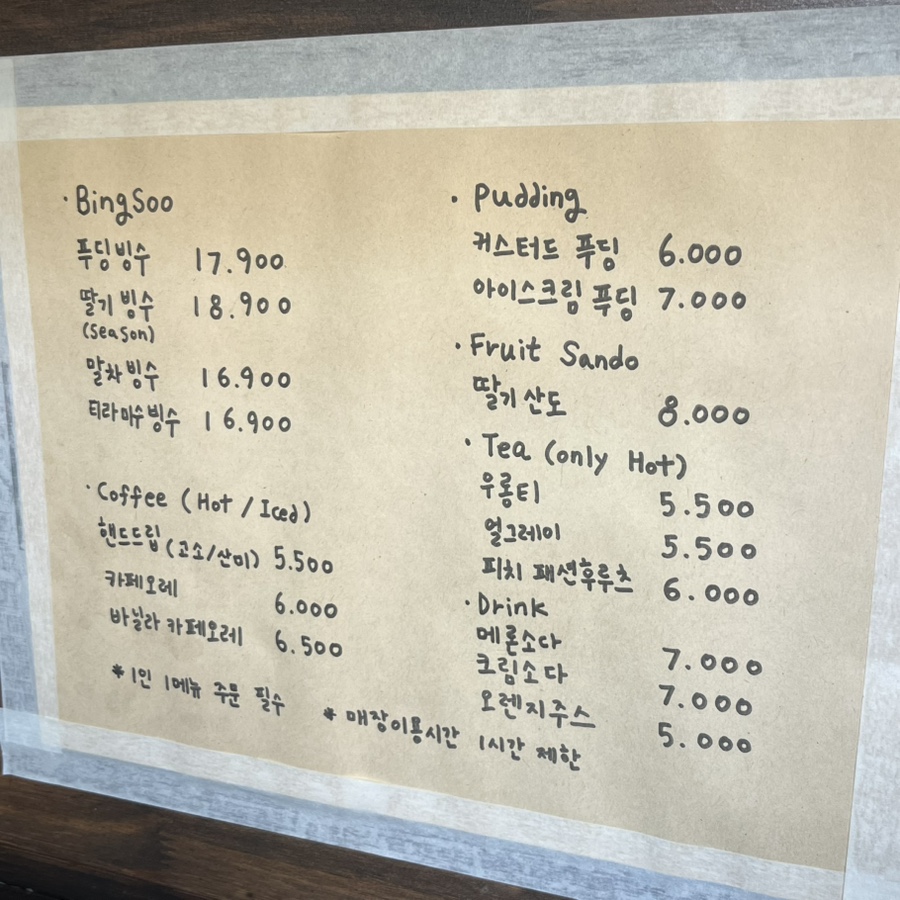 · BingSoo
푸딩빙수 17.900
딸기 빙수 18.900
(Season)
말차빙수 16.900
티라미수빙수 16.900
· Coffee (Hot / Iced)
핸드드립 (고소/산미) 5.500
카페오레 6.000
바닐라 카페오레 6.500
* 1인 1메뉴 주문 필수
· Pudding
커스터드 푸딩 6.000
아이스크림 푸딩 7.000
· Fruit Sando
딸기산도 8.000
· Tea (only Hot)
우롱티 5.500
얼그레이 5.500
피치 패션후루츠 6.000
· Drink
메론소다 7.000
크림소다 7.000
오렌지주스 5.000
* 매장이용시간 1시간 제한